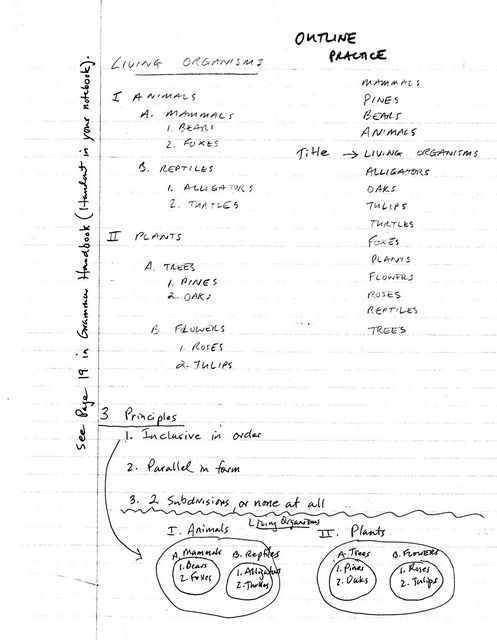 OUTLINE
PRACTICE
LIVING ORGANISMS
I ANIMALS
A. MAMMALS
1. BEARS
2. FOXES
B. REPTILES
1. ALLIGATORS
2. TURTLES
II PLANTS
A. TREES
1. PINES
2. OAKS
B. FLOWERS
1. ROSES
2. TULIPS
MAMMALS
PINES
BEARS
ANIMALS
Title → LIVING ORGANISMS
ALLIGATORS
OAKS
TULIPS
TURTLES
FOXES
PLANTS
FLOWERS
ROSES
REPTILES
TREES
See Page 19 in Grammar Handbook (Handout in your notebook).
3 Principles
1. Inclusive in order
2. Parallel in form
3. 2 Subdivisions, or none at all
Living Organisms
I. Animals
A. Mammals
1. Bears
2. Foxes
B. Reptiles
1. Alligators
2. Turtles
II. Plants
A. Trees
1. Pines
2. Oaks
B. FLOWERS
1. Roses
2. Tulips